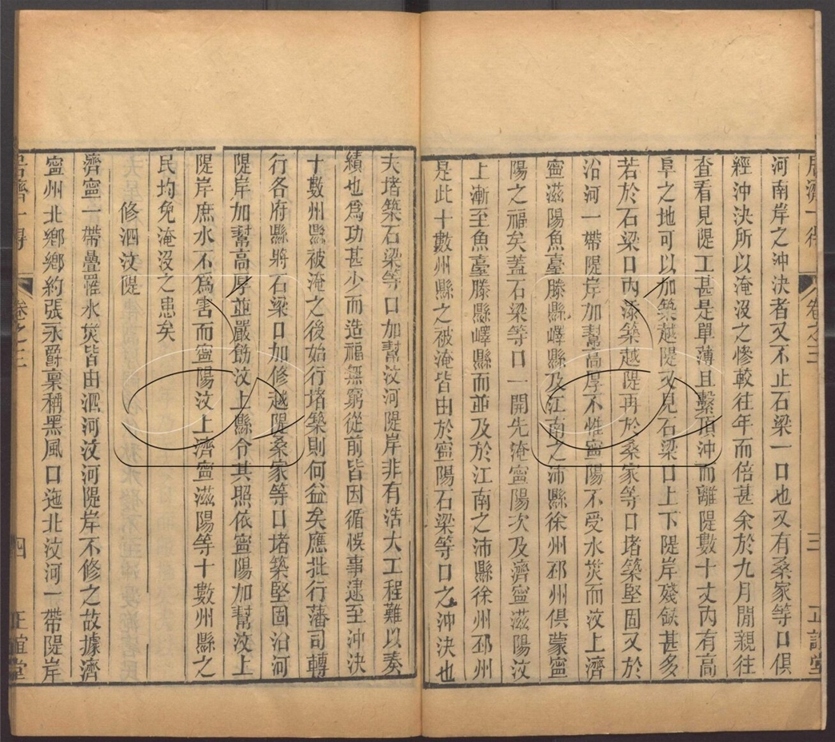 居濟一得 卷之三 三 正誼堂
河南岸之沖決者又不止石梁一口也又有桑家等口俱
經沖決所以淹沒之慘較往年而倍甚余於九月間親往
查看見隄工甚是單薄且繫頂沖而離隄數十丈內有高
阜之地可以加築越隄又見石梁口上下隄岸殘缺甚多
若於石梁口內添築越隄再於桑家等口堵築堅固又於
沿河一帶隄岸加幫高厚不惟寧陽不受水災而汶上濟
寧滋陽魚臺滕縣嶧縣及江南之沛縣徐州邳州俱蒙寧
陽之福矣蓋石梁等口一開先淹寧陽次及濟寧滋陽汶
上漸至魚臺滕縣嶧縣而並及於江南之沛縣徐州邳州
是此十數州縣之被淹皆由於寧陽石梁等口之沖決也
夫堵築石梁等口加幫汶河隄岸非有浩大工程難以奏
績也為功甚少而造福無窮從前皆因循悞事逮至沖決
十數州縣被淹之後始行堵築則何益矣應批行藩司轉
行各府縣將石梁口加修越隄桑家等口堵築堅固沿河
隄岸加幫高厚並嚴飭汶上縣令其照依寧陽加幫汶上
隄岸庶水不為害而寧陽汶上濟寧滋陽等十數州縣之
民均免淹沒之患矣
修泗汶隄
濟寧一帶疊罹水災皆由泗河汶河隄岸不修之故據濟
寧州北鄉鄉約張永爵稟稱黑風口迤北汶河一帶隄岸
居濟一得 卷之三 四 正誼堂